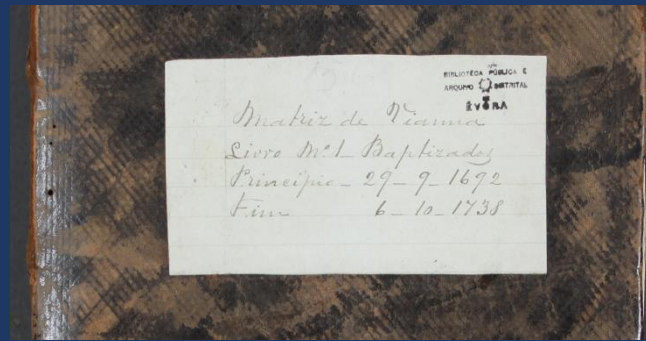 BIBLIOTECA PÚBLICA E
ARQUIVO DISTRITAL
ÉVORA
Matriz de Vianna
Livro Nº 1 Baptizados
Principio - 29 - 9 - 1692
Fim 6 - 10 - 1738